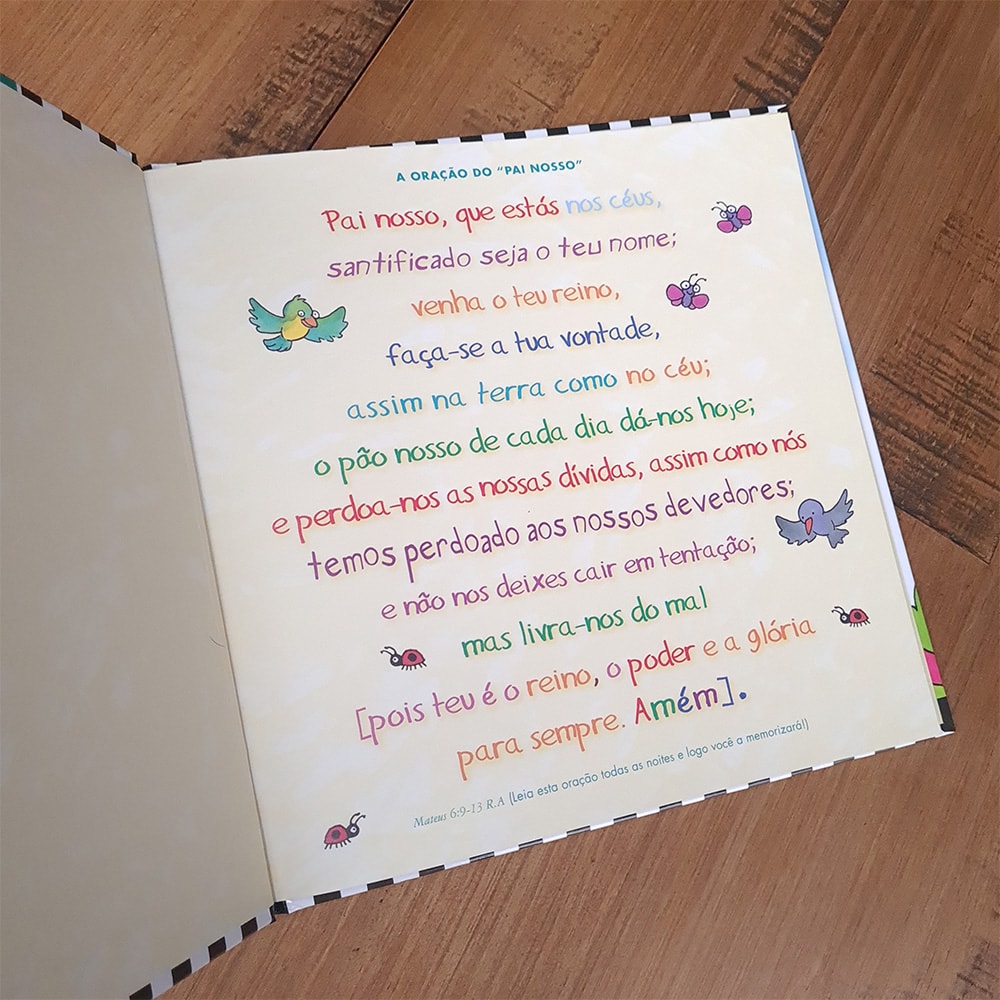 A ORAÇÃO DO "PAI NOSSO"
Pai nosso, que estás nos céus,
santificado seja o teu nome;
venha o teu reino,
faça-se a tua vontade,
assim na terra como no céu;
o pão nosso de cada dia dá-nos hoje;
e perdoa-nos as nossas dívidas, assim como nós
temos perdoado aos nossos devedores;
e não nos deixes cair em tentação;
mas livra-nos do mal
[pois teu é o reino, o poder e a glória
para sempre. Amém].
Mateus 6:9-13 R.A (Leia esta oração todas as noites e logo você a memorizará!)